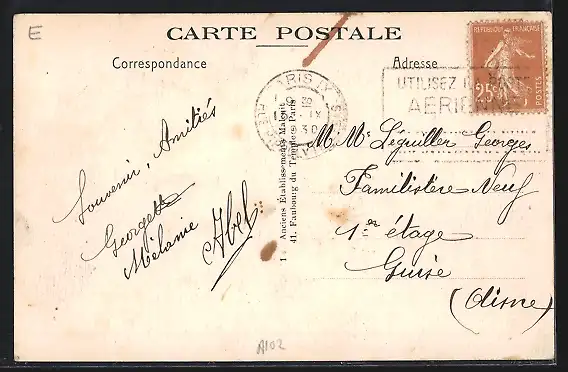 E
CARTE POSTALE
Correspondance
Adresse
REPUBLIQUE FRANÇAISE
25c
UTILISEZ LA POSTE
AERIENNE
PARIS IX
IX
30
Souvenir, Amitiés
Georgette
Mélanie
Abel
1 Anciens Etablissements Malcuit
41, Faubourg du Temple - Paris
M. Mme Léguiller Georges
Familistère Neuf
1er étage
Guise
(Aisne)
A102